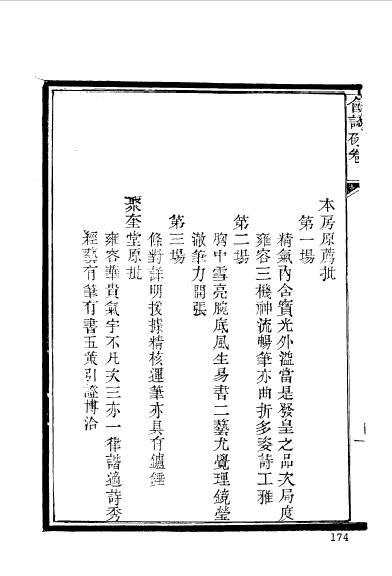 會試硃卷
本房原薦批
第一場
精氣內含寶光外溢當是發皇之品次局度
雍容三機神流暢筆亦曲折多姿詩工雅
第二場
胸中雪亮腕底風生易書二藝尤覺理鏡瑩
澈筆力開張
第三場
條對詳明援據精核運筆亦具有鑪錘
聚奎堂原批
雍容華貴氣宇不凡次三亦一律諧適詩秀
經藝有筆有書五策引證博洽
174